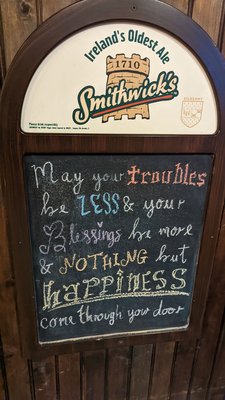 Ireland's Oldest Ale
1710
Smithwick's
KILKENNY
May your troubles
be LESS & your
Blessings be more
& NOTHING but
happiness
come through your door